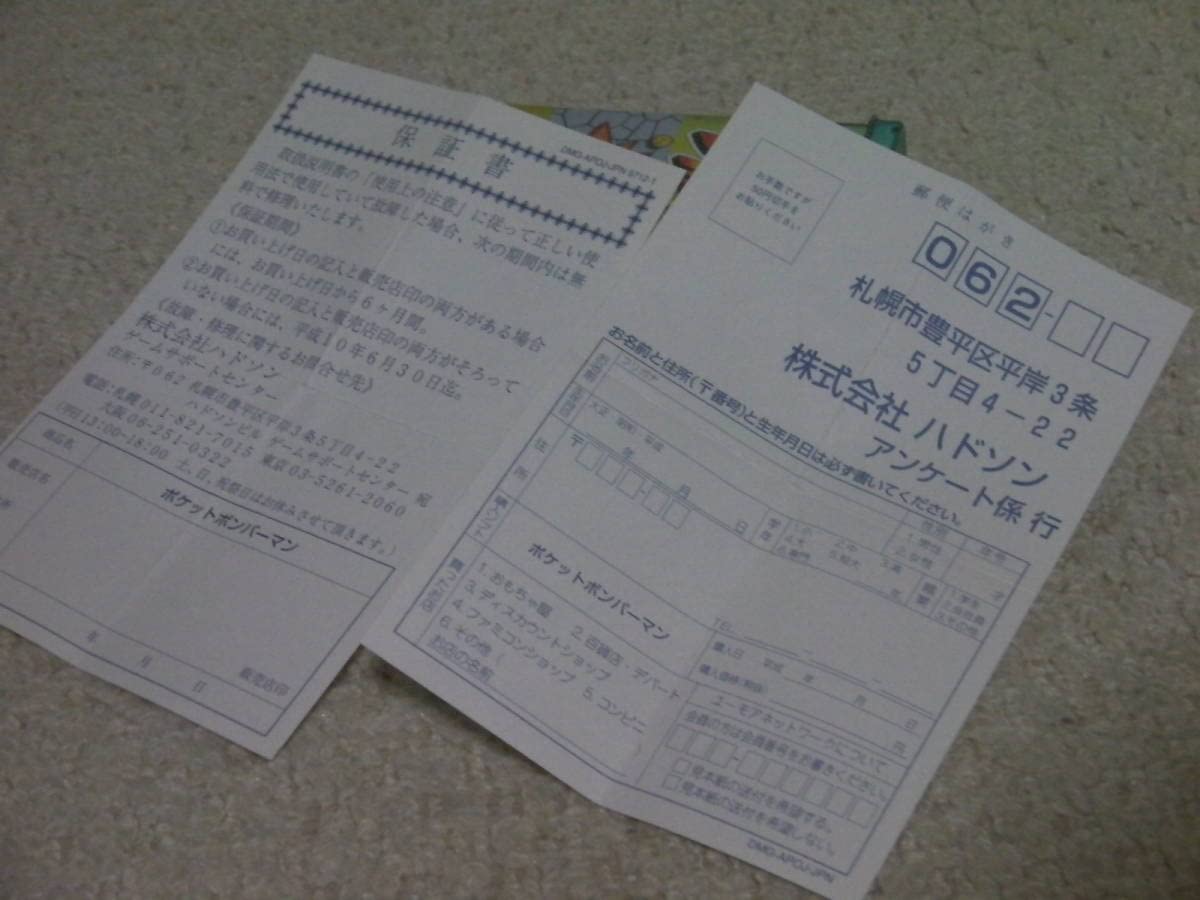 保証書
DMG-APOJ-JPN 9712-1
取扱説明書の「使用上の注意」に従って正しい使
用法で使用していて故障した場合、次の期間内は無
料で修理いたします。
《保証期間》
①お買い上げ日の記入と販売店印の両方がある場合
には、お買い上げ日から6ヶ月間。
②お買い上げ日の記入と販売店印の両方がそろって
いない場合には、平成10年6月30日迄。
《故障・修理に関するお問合せ先》
株式会社ハドソン
ゲームサポートセンター
住所:〒062 札幌市豊平区平岸3条5丁目4-22
ハドソンビル ゲームサポートセンター 宛
電話:札幌011-821-7015 東京03-5261-2060
大阪06-251-0322
(平日13:00-18:00 土、日、祝祭日はお休みさせて頂きます。)
商品名
ポケットボンバーマン
販売店名
年 月 日
販売店印
郵便はがき
お手数ですが
50円切手を
お貼りください
062-
札幌市豊平区平岸3条
5丁目4-22
株式会社 ハドソン
アンケート係 行
お名前と住所(〒番号)と生年月日は必ず書いてください。
お名前
フリガナ
性別
1.男性
2.女性
年齢
才
生年月日
大正 昭和 平成
年 月 日
学年
職業
1.学生
2.会社員
3.その他
住所
〒
TEL
購入ソフト
ポケットボンバーマン
購入日 平成 年 月 日
購入価格(税抜) 円
買ったお店
1.おもちゃ屋 2.百貨店・デパート
3.ディスカウントショップ
4.ファミコンショップ 5.コンビニ
6.その他(
お店の名前
ユーモアネットワークについて
会員の方は会員番号をお書きください。
見本紙の送付を希望する。
見本紙の送付を希望しない。
DMG-APOJ-JPN